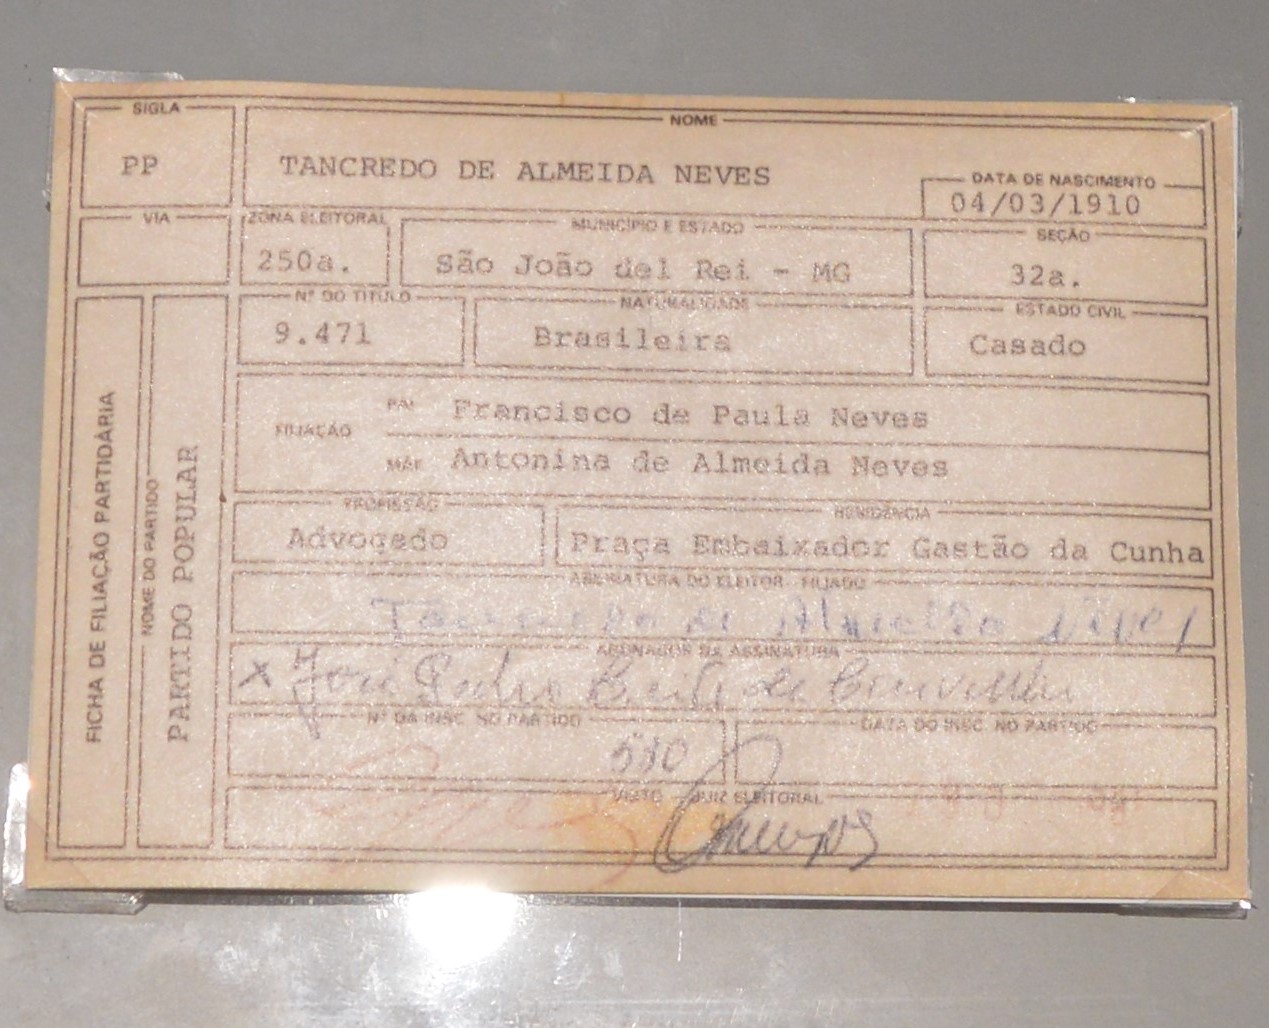 SIGLA NOME
PP TANCREDO DE ALMEIDA NEVES
DATA DE NASCIMENTO
04/03/1910
VIA ZONA ELEITORAL MUNICÍPIO E ESTADO SEÇÃO
250a. São João del Rei - MG 32a.
Nº DO TÍTULO NATURALIDADE ESTADO CIVIL
9.471 Brasileira Casado
FICHA DE FILIAÇÃO PARTIDÁRIA
NOME DO PARTIDO
PARTIDO POPULAR
FILIAÇÃO
PAI Francisco de Paula Neves
MÃE Antonina de Almeida Neves
PROFISSÃO RESIDÊNCIA
Advogado Praça Embaixador Gastão da Cunha
ASSINATURA DO ELEITOR FILIADO
Tancredo de Almeida Neves
ABONADOR DA ASSINATURA
x José Pedro
Nº DA INSC. NO PARTIDO DATA DO INSC. NO PARTIDO
530
VISTO JUIZ ELEITORAL